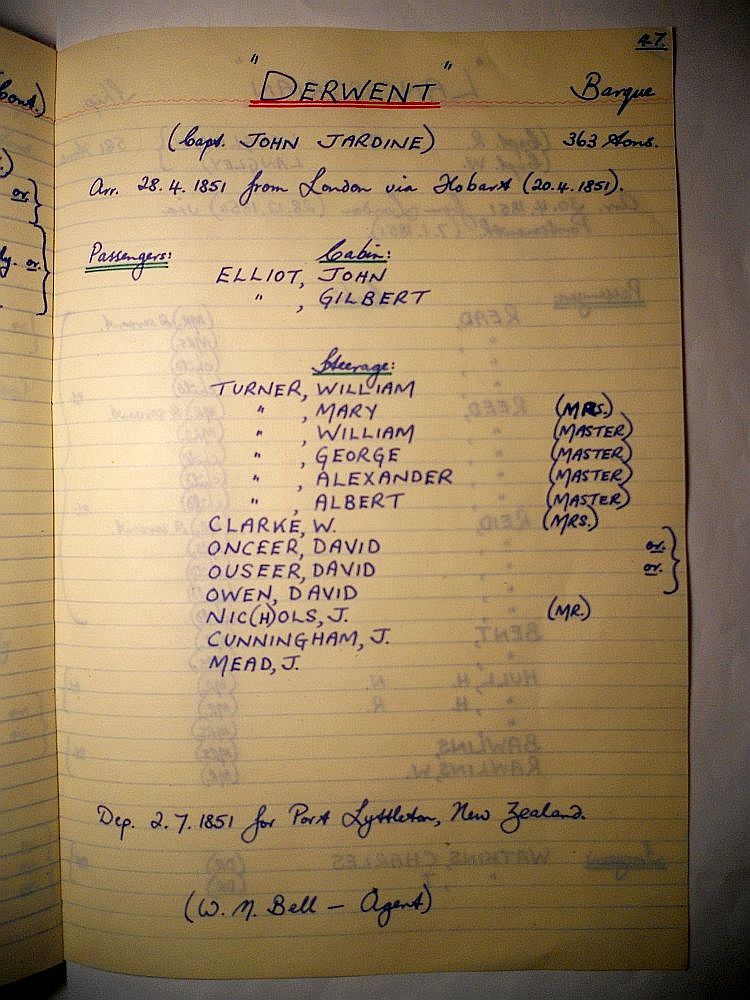 47.
"DERWENT" Barque
(Capt. JOHN JARDINE) 363 tons.
Arr. 28.4.1851 from London via Hobart (20.4.1851).
Passengers: Cabin:
ELLIOT, JOHN
" , GILBERT
Steerage:
TURNER, WILLIAM
" , MARY (MRS.)
" , WILLIAM (MASTER)
" , GEORGE (MASTER)
" , ALEXANDER (MASTER)
" , ALBERT (MASTER)
CLARKE, W. (MRS.)
ONCEER, DAVID or.
OUSEER, DAVID or.
OWEN, DAVID
NIC(H)OLS, J. (MR.)
CUNNINGHAM, J.
MEAD, J.
Dep. 2.7.1851 for Port Lyttleton, New Zealand.
(W. M. Bell - Agent)
cont.)
or.
ly. or.